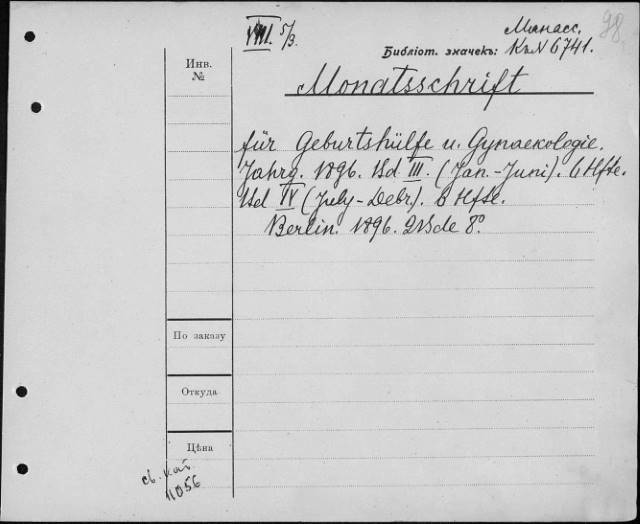 98.
VIII. 5/3.
Манасс.
Библіот. значекъ: Къ N 6741.
Инв.
№
Monatsschrift
für Geburtshülfe u. Gynaekologie.
Jahrg. 1896. Bd III. (Jan.-Juni). 6 Hfte.
Bd IV (July-Debr). 6 Hfte.
Berlin. 1896. 2 Bde 8°.
По заказу
Откуда
Цѣна
св. кат
11056